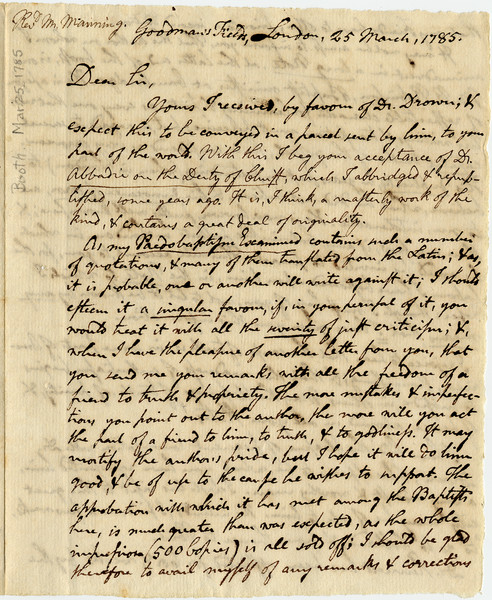 Revd. Mr. Manning.
Goodman's Fields, London, 25 March, 1785.
Booth. Mar 25, 1785
Dear Sir,
Yours I received, by favour of Dr. Drown; &
expect this to be conveyed in a parcel sent by him, to your
part of the world. With this I beg your acceptance of Dr.
Abbadie on the Deity of Christ, which I abridged & repub-
lished, some years ago. It is, I think, a masterly work of the
kind, & contains a great deal of originality.
As my Pædobaptism Examined contains such a number
of quotations, & many of them translated from the Latin; & as,
it is probable, one or another will write against it; I should
esteem it a singular favour, if, in your perusal of it, you
would treat it with all the severity of just criticism; &,
when I have the pleasure of another letter from you, that
you send me your remarks with all the freedom of a
friend to truth & propriety. The more mistakes & imperfec-
tions you point out to the author, the more will you act
the part of a friend to him, to truth, & to godliness. It may
mortify the author's pride, but I hope it will do him
good, & be of use to the cause he wishes to support. The
approbation with which it has met among the Baptists
here, is much greater than was expected, as the whole
impression (500 Copies) is all sold off; I should be glad
therefore to avail myself of any remarks & corrections